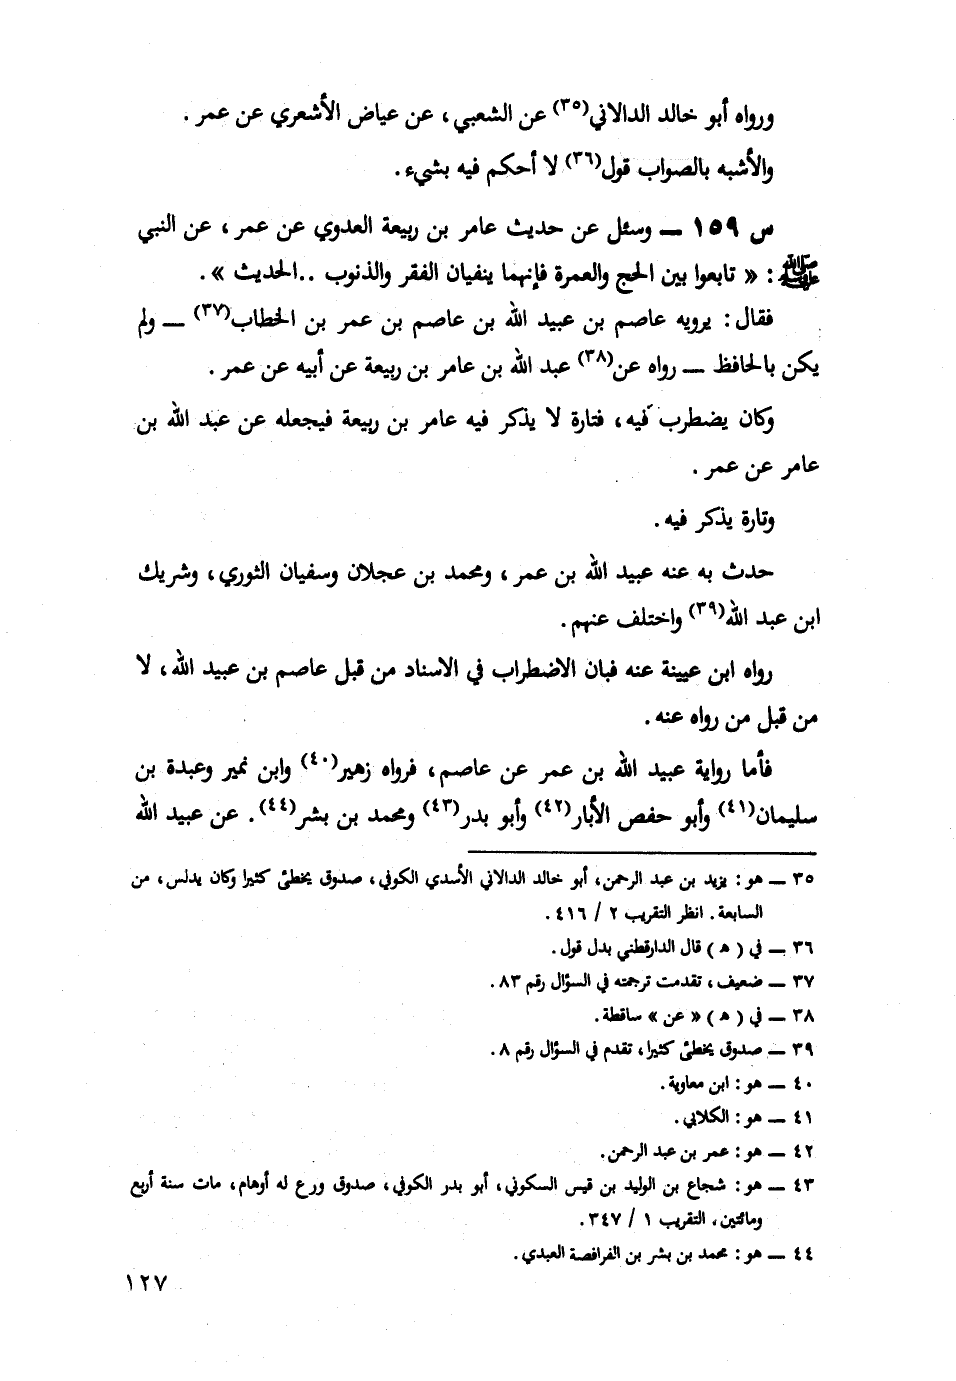 ورواه أبو خالد الدالاني(٣٥) عن الشعبي، عن عياض الأشعري عن عمر.
والأشبه بالصواب قول(٣٦) لا أحكم فيه بشيء.
س ١٥٩ ــ وسئل عن حديث عامر بن ربيعة العدوي عن عمر، عن النبي
ﷺ: « تابعوا بين الحج والعمرة فإنهما ينفيان الفقر والذنوب ..الحديث ».
فقال: يرويه عاصم بن عبيد الله بن عاصم بن عمر بن الخطاب(٣٧) ــ ولم
يكن بالحافظ ــ رواه عن(٣٨) عبد الله بن عامر بن ربيعة عن أبيه عن عمر.
وكان يضطرب فيه، فتارة لا يذكر فيه عامر بن ربيعة فيجعله عن عبد الله بن
عامر عن عمر.
وتارة يذكر فيه.
حدث به عنه عبيد الله بن عمر، ومحمد بن عجلان وسفيان الثوري، وشريك
ابن عبد الله(٣٩) واختلف عنهم.
رواه ابن عيينة عنه فبان الاضطراب في الاسناد من قبل عاصم بن عبيد الله، لا
من قبل من رواه عنه.
فأما رواية عبيد الله بن عمر عن عاصم، فرواه زهير(٤٠) وابن نمير وعبدة بن
سليمان(٤١) وأبو حفص الأبار(٤٢) وأبو بدر(٤٣) ومحمد بن بشر(٤٤). عن عبيد الله
٣٥ ــ هو: يزيد بن عبد الرحمن، أبو خالد الدالاني الأسدي الكوفي، صدوق يخطئ كثيرا وكان يدلس، من
السابعة. انظر التقريب ٢ / ٤١٦.
٣٦ ــ في ( هـ ) قال الدارقطني بدل قول.
٣٧ ــ ضعيف، تقدمت ترجمته في السؤال رقم ٨٣.
٣٨ ــ في ( هـ ) « عن » ساقطة.
٣٩ ــ صدوق يخطئ كثيرا، تقدم في السؤال رقم ٨.
٤٠ ــ هو: ابن معاوية.
٤١ ــ هو: الكلابي.
٤٢ ــ هو: عمر بن عبد الرحمن.
٤٣ ــ هو: شجاع بن الوليد بن قيس السكوني، أبو بدر الكوفي، صدوق ورع له أوهام، مات سنة أربع
ومائتين، التقريب ١ / ٣٤٧.
٤٤ ــ هو: محمد بن بشر بن الفرافصة العبدي.
١٢٧